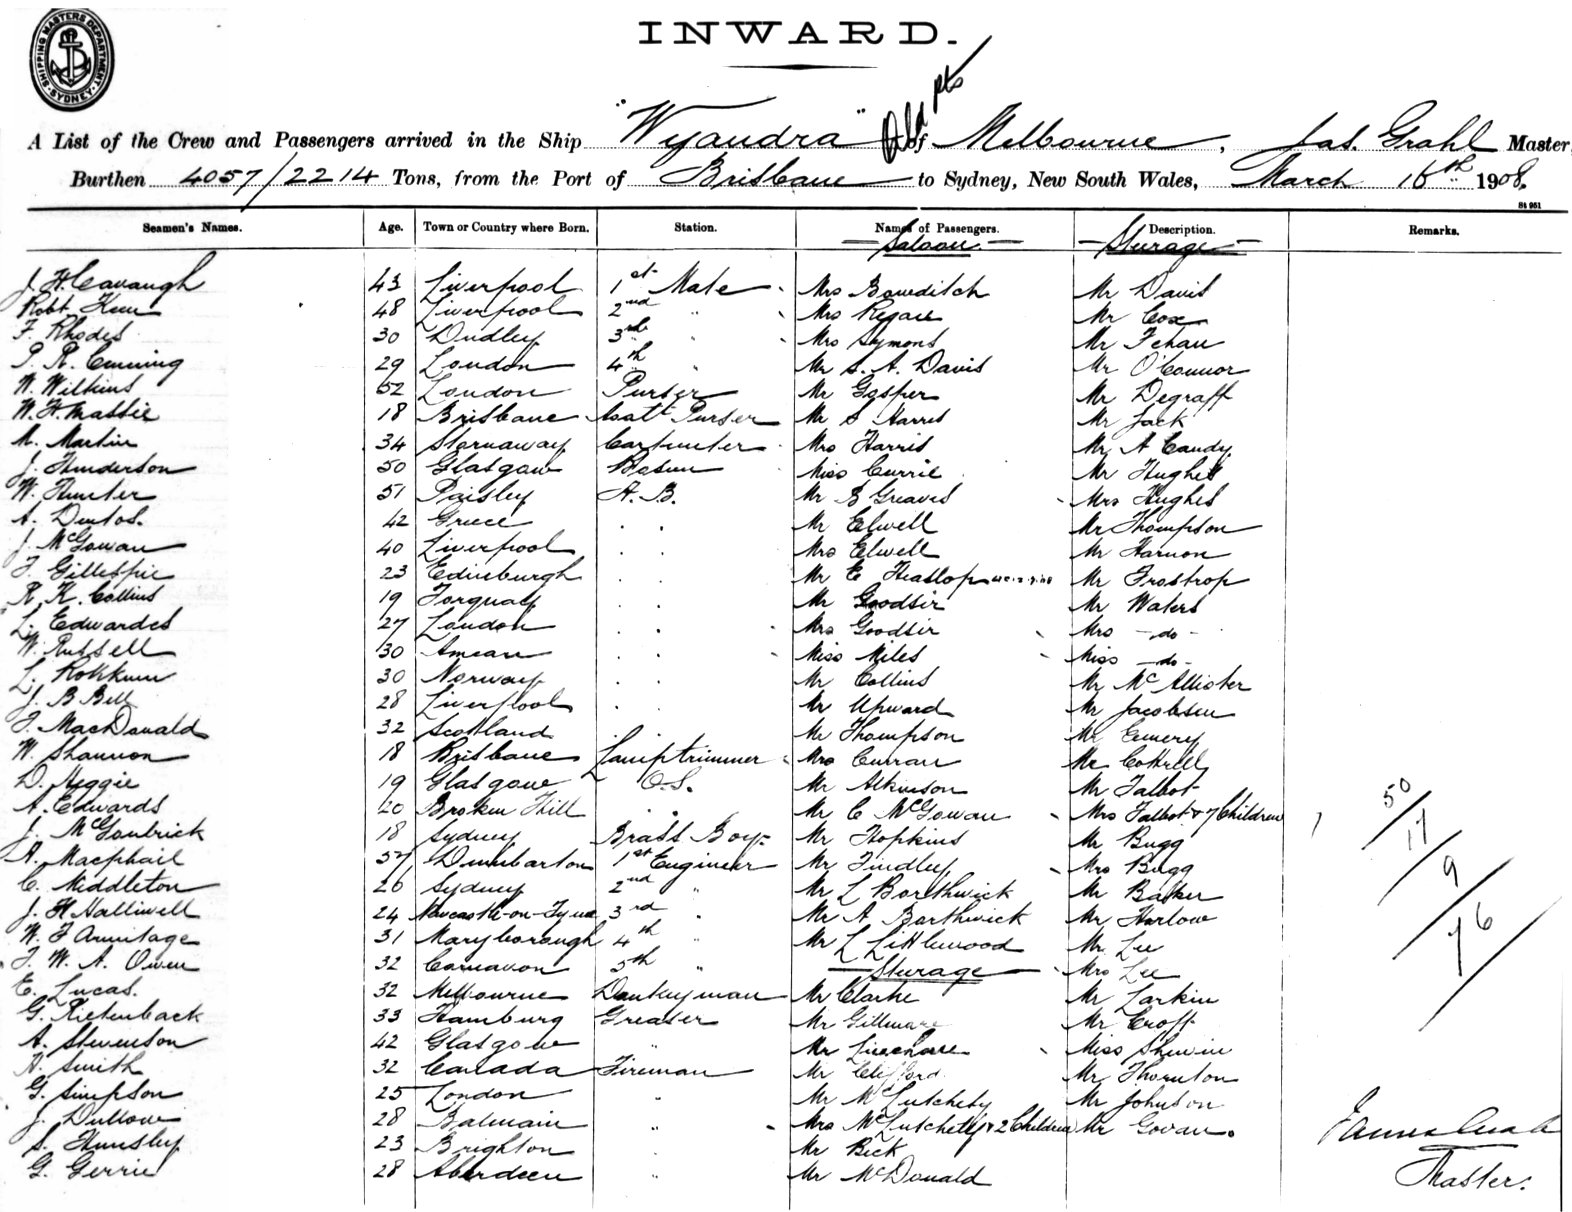 SHIPPING MASTERS DEPARTMENT SYDNEY
INWARD.
pts
A List of the Crew and Passengers arrived in the Ship "Wyandra" of Melbourne, Jas. Grahl Master,
Burthen 4057/2214 Tons, from the Port of Brisbane to Sydney, New South Wales, March 16th 1908.
St 951
Seamen's Names. Age. Town or Country where Born. Station. Names of Passengers. Description. Remarks.
Saloon. Sturage
J. H. Cavaugh 43 Liverpool 1st Mate Mrs Bowditch Mr Davis
Robt Kerr 48 Liverpool 2nd " Mrs Regan Mr Cox
F. Rhodes 30 Dudley 3rd " Mrs Symons Mr Fehan
P. R. Cumming 29 London 4th " Mr S. A. Davis Mr O'Connor
W. Wilkins 52 London Purser Mr Gosper Mr Degraff
W. H. Massie 18 Brisbane Asst Purser Mr S Harris Mr Jack
M. Martin 34 Stornaway Carpenter Mrs Harris Mr A Candy
J. Henderson 50 Glasgow Bosun Miss Currie Mr Hughes
W. Hunter 51 Paisley A.B. Mr B Greaves Mrs Hughes
A. 42 Greece " " Mr Elwell Mr Thompson
J. McGowan 40 Liverpool " " Mrs Elwell Mr Harnon
F. Gillespie 23 Edinburgh " " Mr E Heaslop Mr Frostrop
R. K. Collins 19 Torquay " " Mr Goodsir Mr Waters
L. Edwardes 27 London " " Mrs Goodsir Mrs - do -
W. Russell 30 " " Miss Miles Miss - do -
L. 30 Norway " " Mr Collins Mr McAllister
J. B Bell 28 Liverpool " " Mr Upward Mr Jacobsen
F. MacDonald 32 Scotland " " Mr Thompson Mr Emery
W. Shannon 18 Brisbane Lamptrimmer Mrs Curran Mr Cottrell
D. Heggie 19 Glasgow O.S. Mr Atkinson Mr Talbot
A. Edwards 20 Broken Hill " " Mr C McGowan Mrs Talbot & 7 Children 7
J. McGoubrick 18 Sydney Brass Boy Mr Hopkins Mr Bugg
A. Macphail 57 Dumbarton 1st Engineer Mr Findley Mrs Bugg
C. Middleton 26 Sydney 2nd " Mr L Borthwick Mr Baker
J. H Halliwell 24 Newcastle-on-Tyne 3rd " Mr A Borthwick Mr Harlow
W. F Armitage 31 Maryborough 4th " Mr L Littlewood Mr Lee
F. W. A. Owen 32 Carnavon 5th " Sturage Mrs Lee
E. Lucas. 32 Melbourne Donkeyman Mr Clarke Mr Larkin
G. Rietenback 33 Hamburg Greaser Mr Gillmare Mr Croft
A. Stevenson 42 Glasgow " Mr Miss Sherwin
H. Smith 32 Canada Fireman Mr Clifford Mr Thornton
G. Simpson 25 London " Mr McCutchety Mr Johnson
J. Dullow 28 Balmain " Mrs McCutchety & 2 Children Mr Govan.
S. Hunsley 23 Brighton " Mr Bick
G. Gerrie 28 Aberdeen " Mr McDonald
50/
17/
9/
76/
Master.